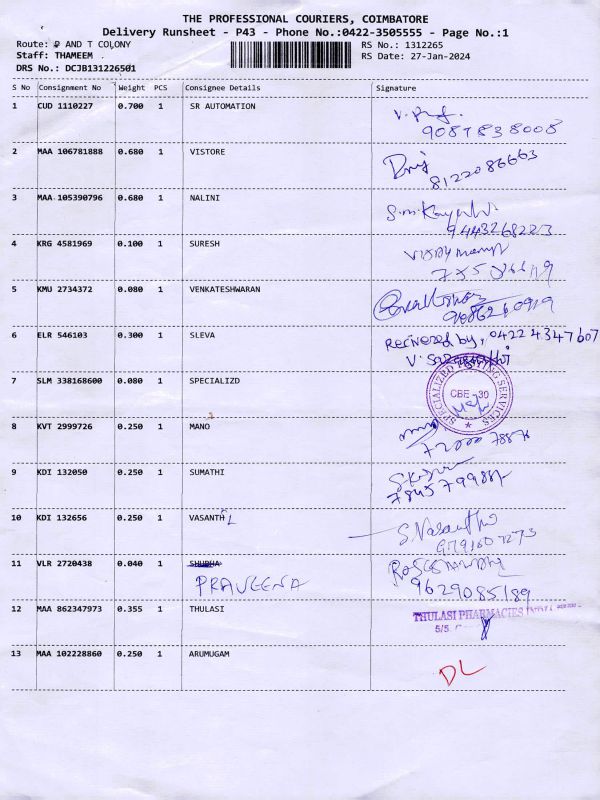 THE PROFESSIONAL COURIERS, COIMBATORE
Delivery Runsheet - P43 - Phone No.:0422-3505555 - Page No.:1
Route: P AND T COLONY
RS No.: 1312265
Staff: THAMEEM .
RS Date: 27-Jan-2024
DRS No.: DCJB131226501
S No Consignment No Weight PCS Consignee Details Signature
1 CUD 1110227 0.700 1 SR AUTOMATION
9087838008
2 MAA 106781888 0.680 1 VISTORE
8122086663
3 MAA 105390796 0.680 1 NALINI
9443268223
4 KRG 4581969 0.100 1 SURESH
5 KMU 2734372 0.080 1 VENKATESHWARAN
6 ELR 546103 0.300 1 SLEVA Recivered by, 04224347607
7 SLM 338168600 0.080 1 SPECIALIZD
SPECIALIZED TESTING SERVICES
CBE - 30
8 KVT 2999726 0.250 1 MANO
9 KDI 132050 0.250 1 SUMATHI
10 KDI 132656 0.250 1 VASANTHI S.Vasantha
9791607273
11 VLR 2720438 0.040 1 SHUBHA
PRAVEENA 9629085189
12 MAA 862347973 0.355 1 THULASI THULASI PHARMACIES
5/5
13 MAA 102228860 0.250 1 ARUMUGAM DL